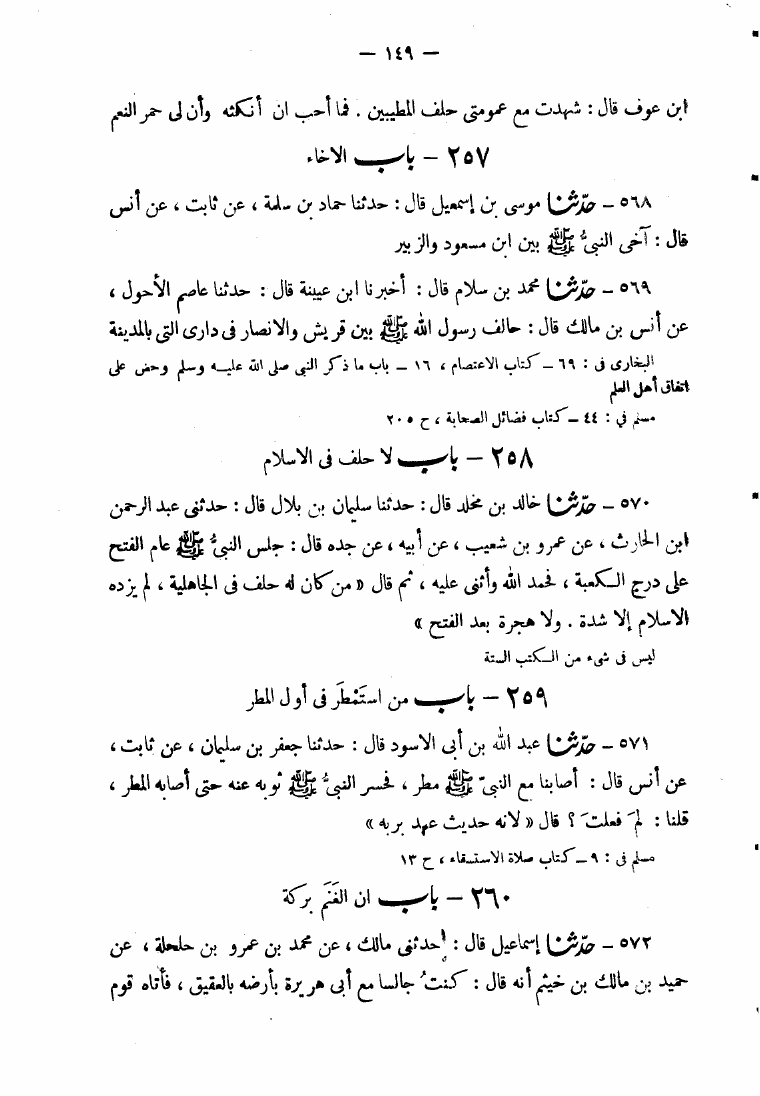 — ١٤٩ —
ابن عوف قال : شهدت مع عمومتى حلف المطيبين . فما أحب ان أنكثه وأن لى حمر النعم
٢٥٧ – باب الاخاء
٥٦٨ – حدّثنا موسى بن إسمعيل قال : حدثنا حماد بن سلمة ، عن ثابت ، عن أنس
قال : آخى النبىُّ ﷺ بين ابن مسعود والزبير
٥٦٩ – حدّثنا محمد بن سلام قال : أخبرنا ابن عيينة قال : حدثنا عاصم الأحول ،
عن أنس بن مالك قال : حالف رسول الله ﷺ بين قريش والانصار فى دارى التى بالمدينة
البخارى فى : ٦٩ – كتاب الاعتصام ، ١٦ – باب ما ذكر النبى صلى الله عليه وسلم وحض على
اتفاق أهل العلم
مسلم فى : ٤٤ – كتاب فضائل الصحابة ، ح ٢٠٥
٢٥٨ – باب لا حلف فى الاسلام
٥٧٠ – حدّثنا خالد بن مخلد قال : حدثنا سليمان بن بلال قال : حدثنى عبد الرحمن
ابن الحارث ، عن عمرو بن شعيب ، عن أبيه ، عن جده قال : جلس النبىُّ ﷺ عام الفتح
على درج الكعبة ، فحمد الله وأثنى عليه ، ثم قال « من كان له حلف فى الجاهلية ، لم يزده
الاسلام إلا شدة . ولا هجرة بعد الفتح »
ليس فى شىء من الكتب الستة
٢٥٩ – باب من استَمْطَرَ فى أول المطر
٥٧١ – حدّثنا عبد الله بن أبى الاسود قال : حدثنا جعفر بن سليمان ، عن ثابت ،
عن أنس قال : أصابنا مع النبىّ ﷺ مطر ، فحسر النبىُّ ﷺ ثوبه عنه حتى أصابه المطر ،
قلنا : لِمَ فعلتَ ؟ قال « لانه حديث عهد بربه »
مسلم فى : ٩ – كتاب صلاة الاستسقاء ، ح ١٣
٢٦٠ – باب ان الغَنَمَ بَرَكة
٥٧٢ – حدّثنا إسماعيل قال : حدثنى مالك ، عن محمد بن عمرو بن حلحلة ، عن
حميد بن مالك بن خيثم أنه قال : كنتُ جالسا مع أبى هريرة بأرضه بالعقيق ، فأتاه قوم